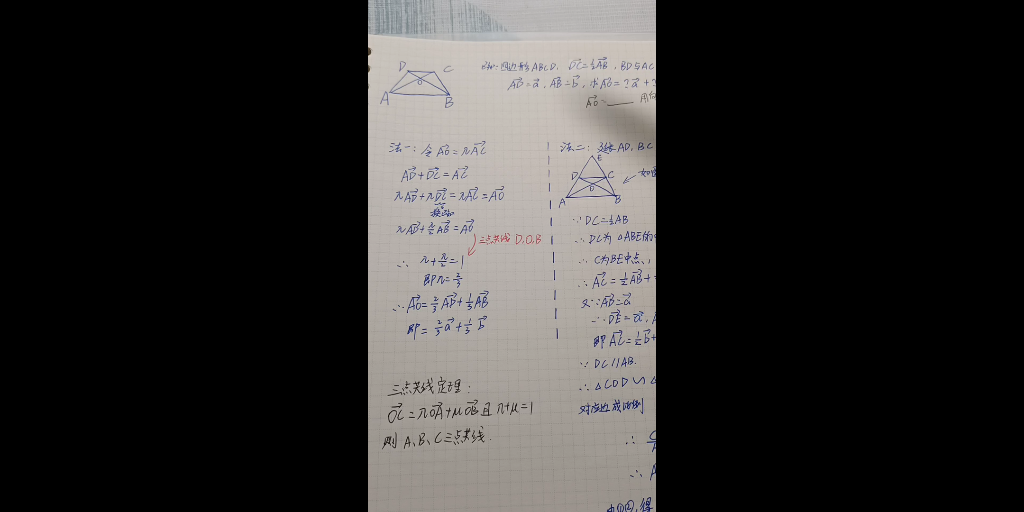 D C
O
A B
如图:四边形ABCD, DC=½AB, BD与AC
AD=a, AB=b, 求AO=?a+?
AO=____
法一: 令AO=λAC
AD+DC=AC
λAD+λDC=λAC=AO
λAD+λ/2AB=AO
三点共线 D,O,B
∴ λ+λ/2=1
即λ=2/3
∴AO=2/3AD+1/3AB
即=2/3a+1/3b
三点共线定理:
OC=λOA+μOB且λ+μ=1
则 A、B、C三点共线.
法二: 延长AD, BC
E
D C
O
A B
∵DC=½AB
∴DC为△ABE的
∴C为BE中点,
∴AC=½AB+
又∵AD=a
∴DE=a,
即AC=½b+
∵DC//AB.
∴△COD∽△
对应边成比例
∴
∴ A
由①②,得